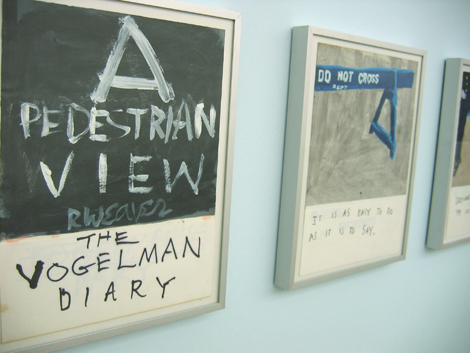 A
PEDESTRIAN
VIEW
RWEAVER
THE
VOGELMAN
DIARY
DO NOT CROSS
DEPT
IT IS AS EASY TO DO
AS IT IS TO SAY.